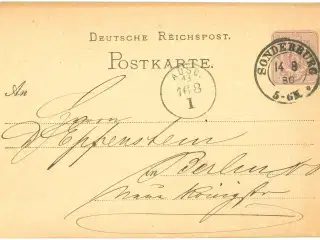 DEUTSCHE REICHSPOST.
POSTKARTE.
SONDERBURG
14 8
80
5-6N.
AUSG.
16 8
I
An
Herrn
D Eppenstein
in Berlin
Neue Königstr